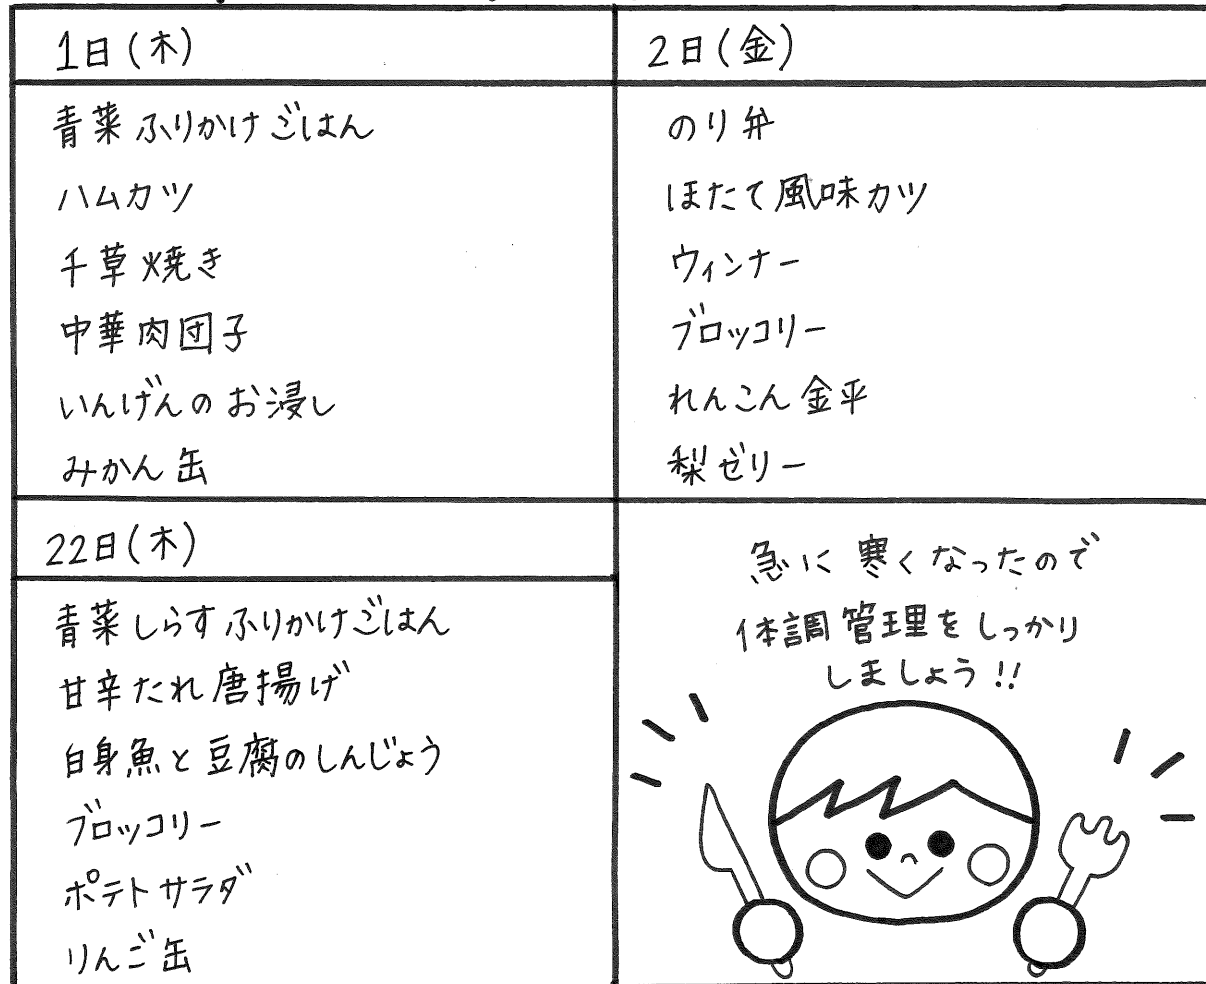 1日(木)
青菜ふりかけごはん
ハムカツ
千草焼き
中華肉団子
いんげんのお浸し
みかん缶
2日(金)
のり弁
ほたて風味カツ
ウィンナー
ブロッコリー
れんこん金平
梨ゼリー
22日(木)
青菜しらすふりかけごはん
甘辛たれ唐揚げ
白身魚と豆腐のしんじょう
ブロッコリー
ポテトサラダ
りんご缶
急に寒くなったので
体調管理をしっかり
しましょう!!